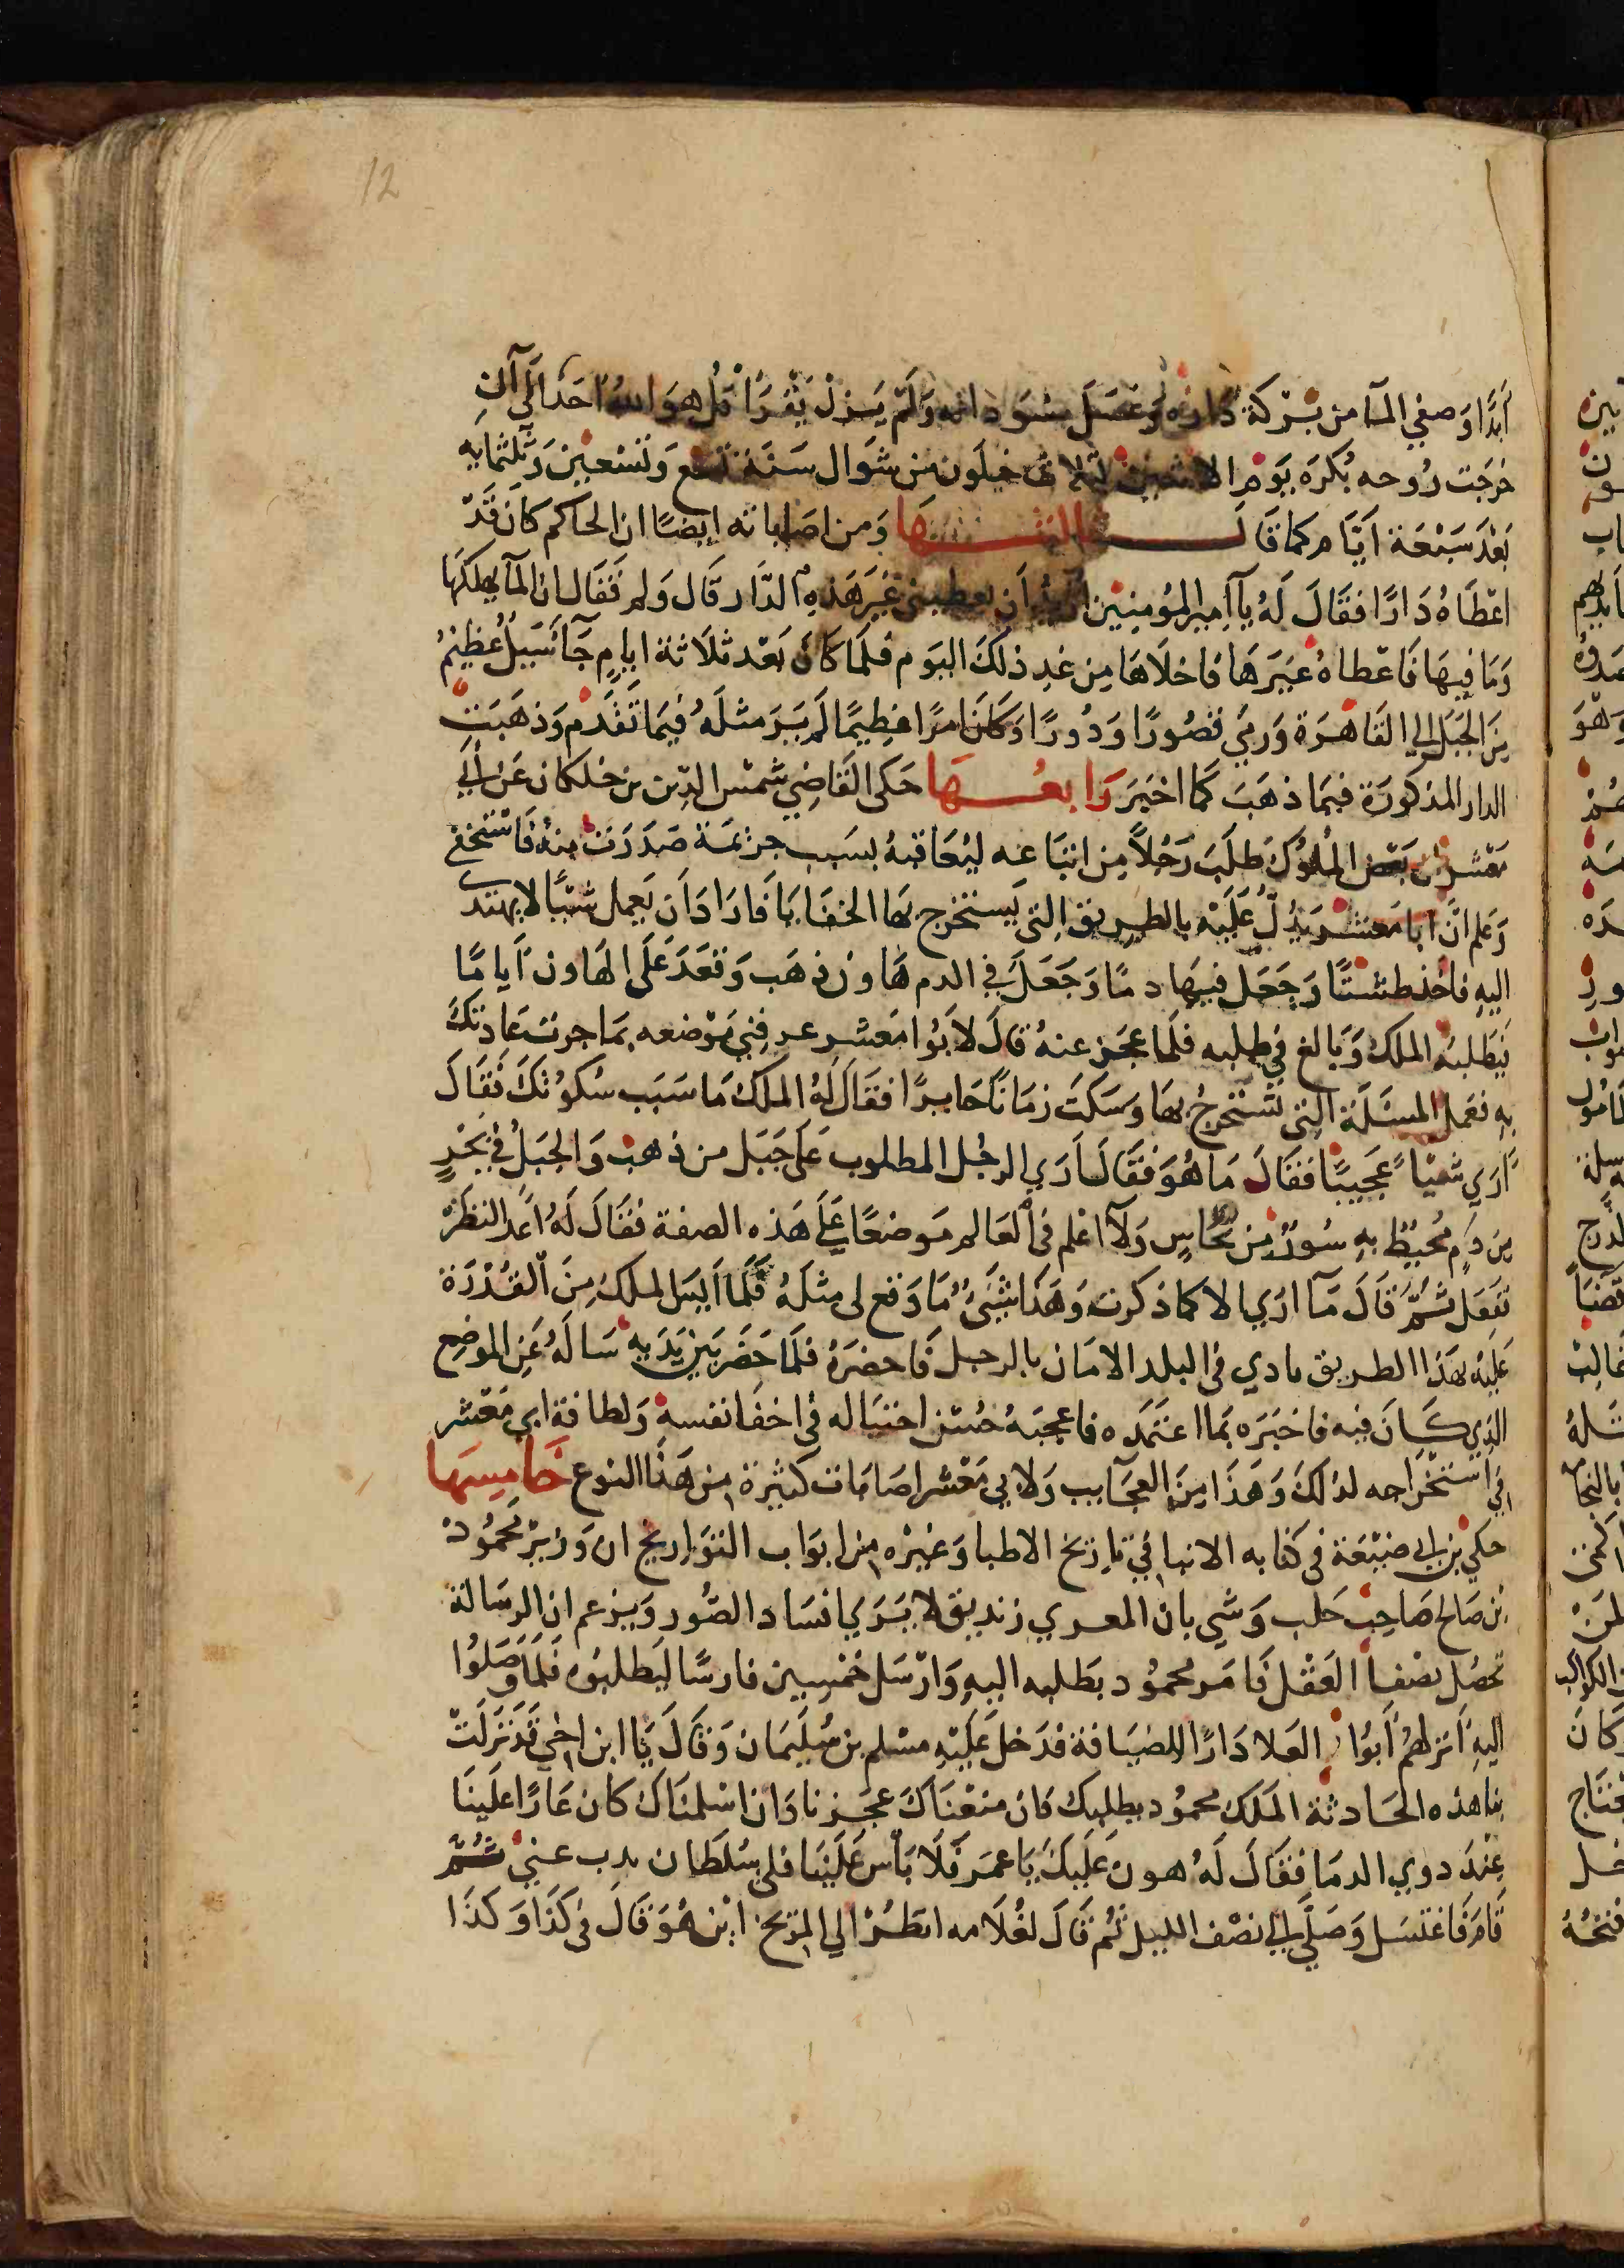 12
أبَدًا وَصفي المآ من بركة دَاره وَغسَل مسودانه وَلَم يَزلْ يَقْرَأ قُل هوَ اللهُ احَد الَي آن
خرجَت رُوحه بُكرَه يَوم الاثنين لثلاث خلَون من شوَال سَنَة تسع وَتسْعين وَثلثمايه
بَعْدَ سَبْعَة اَيَّام كما قَالَ ثالثــــهَا وَمن اصَاباته ايضًا ان الحاكم كانَ قَدْ
اعْطَاهُ دَارًا فقَالَ لَهُ يآ اَمير المؤمِنين اريدُ اَن تعطيني غيَرَ هَذِهِ الدَّار قال وَلم فَقَال ان المآ يهلكهَا
وَمَا فِيهَا فَاعْطاهُ غيَرَهَا فاخلاَهَا مِن غدِ ذلكَ اليَوم فلمَا كانَ بَعْد ثلاَثة ايامٍ جَآ سَيلٌ عظيمٌ
مِنَ الجَبَل الي القَاهَرَة وَرمَي قصُورًا وَدُورًا وَكانَ امرًا عظِيمًا لَم يَرَ مثلَهُ فيمَا تقَدم وَذهَبَت
الدار المذكورَة فيمَا ذهَبَ كما اخبَرَ رَابعُـــهَا حَكى القَاضِي شمْس الدّين بن خلكان عَن ابي
مَعْشر ان بَعض المُلوُك طلَبَ رَجُلاً مِن اتبَاعه ليُعَاقبهُ بسَبب جرَيمَة صَدَرَت مِنهُ فَاستَخفي
وَعلم اَنّ ابا مَعشر يَدُلّ عَلَيْه بالطريق التِي يَستَخرج بهَا الخفَايَا فَارَادَ اَن يَعمل شيًا لا يهتَدي
اليهِ فاخَذ طسْتًا وَجعَل فيهَا دمًا وَجَعَل في الدم هَاونَ ذهَب وَقعَدَ عَلَى الهَاون اَيامًا
فَطَلبَهُ الملك وَبَالغ فِي طلبه فلَما عجَز عنهُ قالَ لاَبوا مَعشر عرفِني مَوْضعه بمَا جرَت عَادتكَ
بِهِ فعَمل المسئلَة التِي يَستخرجُ بهَا وسَكتَ زمَانًا حَايرًا فقَالَ لَهُ الملك مَا سَبَب سُكوُتكَ فَقَالَ
أرَي شيًا عَجيبًا فقَالَ مَا هُوَ فقَالَ اَرَي الرجُل المطلوب عَلَى جَبَل من ذهَب وَالجبَلُ في بَحْرٍ
مِن دَمٍ مُحيطٌ بهِ سُورٌ مِن نحُاسٍ وَلآ اعْلم في العَالم مَوضعًا عَلَي هَذه الصفة فقَالَ لَهُ اَعد النظَر
فَفَعَل ثمّ قَالَ مَآ ارَي الا كما ذكرت وَهَذا شَيءٌ مَا وَقع لي مثلَهُ فلَمَا اَيسَ الملكُ مِنَ القُدْرَة
عَلَيْه بهَذا الطريق نادي في البلد الامَان بالرجل فَاحضرَهُ فلمَا حَضَر بَين يَدَيه سَالَهُ عَنِ الموضِع
الذي كَانَ فيه فاخبَرَه بمَا اعتَمَدَه فاعجبَهُ حُسْن احتيَاله في اخفا نفسهِ وَلطافة ابي مَعْشر
في استخْرَاجه لذلكَ وَهَذَا مِنَ العجَايب وَلابي مَعْشر اصَابَات كثيرَة من هَذَا النوع خَامِسهَا
حكي بن ابي ضبيعَة في كتابه الانبا في تاريخ الاطبا وَغيرْه من ابوَاب التوَاريخ ان وَزيْر مَحمُود
بْن صَالح صَاحِب حَلب وَشي بان المعري زنديق لا يَرَي افسَاد الصُور وَيزعم ان الرسَالة
تحصُل بصْفا العَقْل فَامَر محمُود بطَلبه اليهِ وَارْسَل خمْسِين فارسًا ليَطلبُوه فلَمَا وَصَلُوا
اليهِ اَنزلهُم اَبُوا العَلا دَارًا للضيَافة فدَخل عَلَيْهِ مسْلم بن سُليمَان وَقالَ يَا ابن اخي قَد نَزلَتْ
بنا هذه الحَادثَة الملك محمُود يطلبك فان منعْنَاكَ عجَزنا وَان اسْلمنَاك كان عَارًا علَينَا
عِنْدَ دوي الدمَا فقَالَ لَهُ هون عَلَيكَ يَا عمَر فلَا بَأس عَلَيْنَا فلي سُلطَان يدب عني ثمّ
قَامَ فاغتسَل وَصَلَّي الي نصْف الليل ثم قَالَ لغُلَامه انظُرْ الي المرّيخ اَيْن هُوَ قالَ في كَذَا وَكذَا